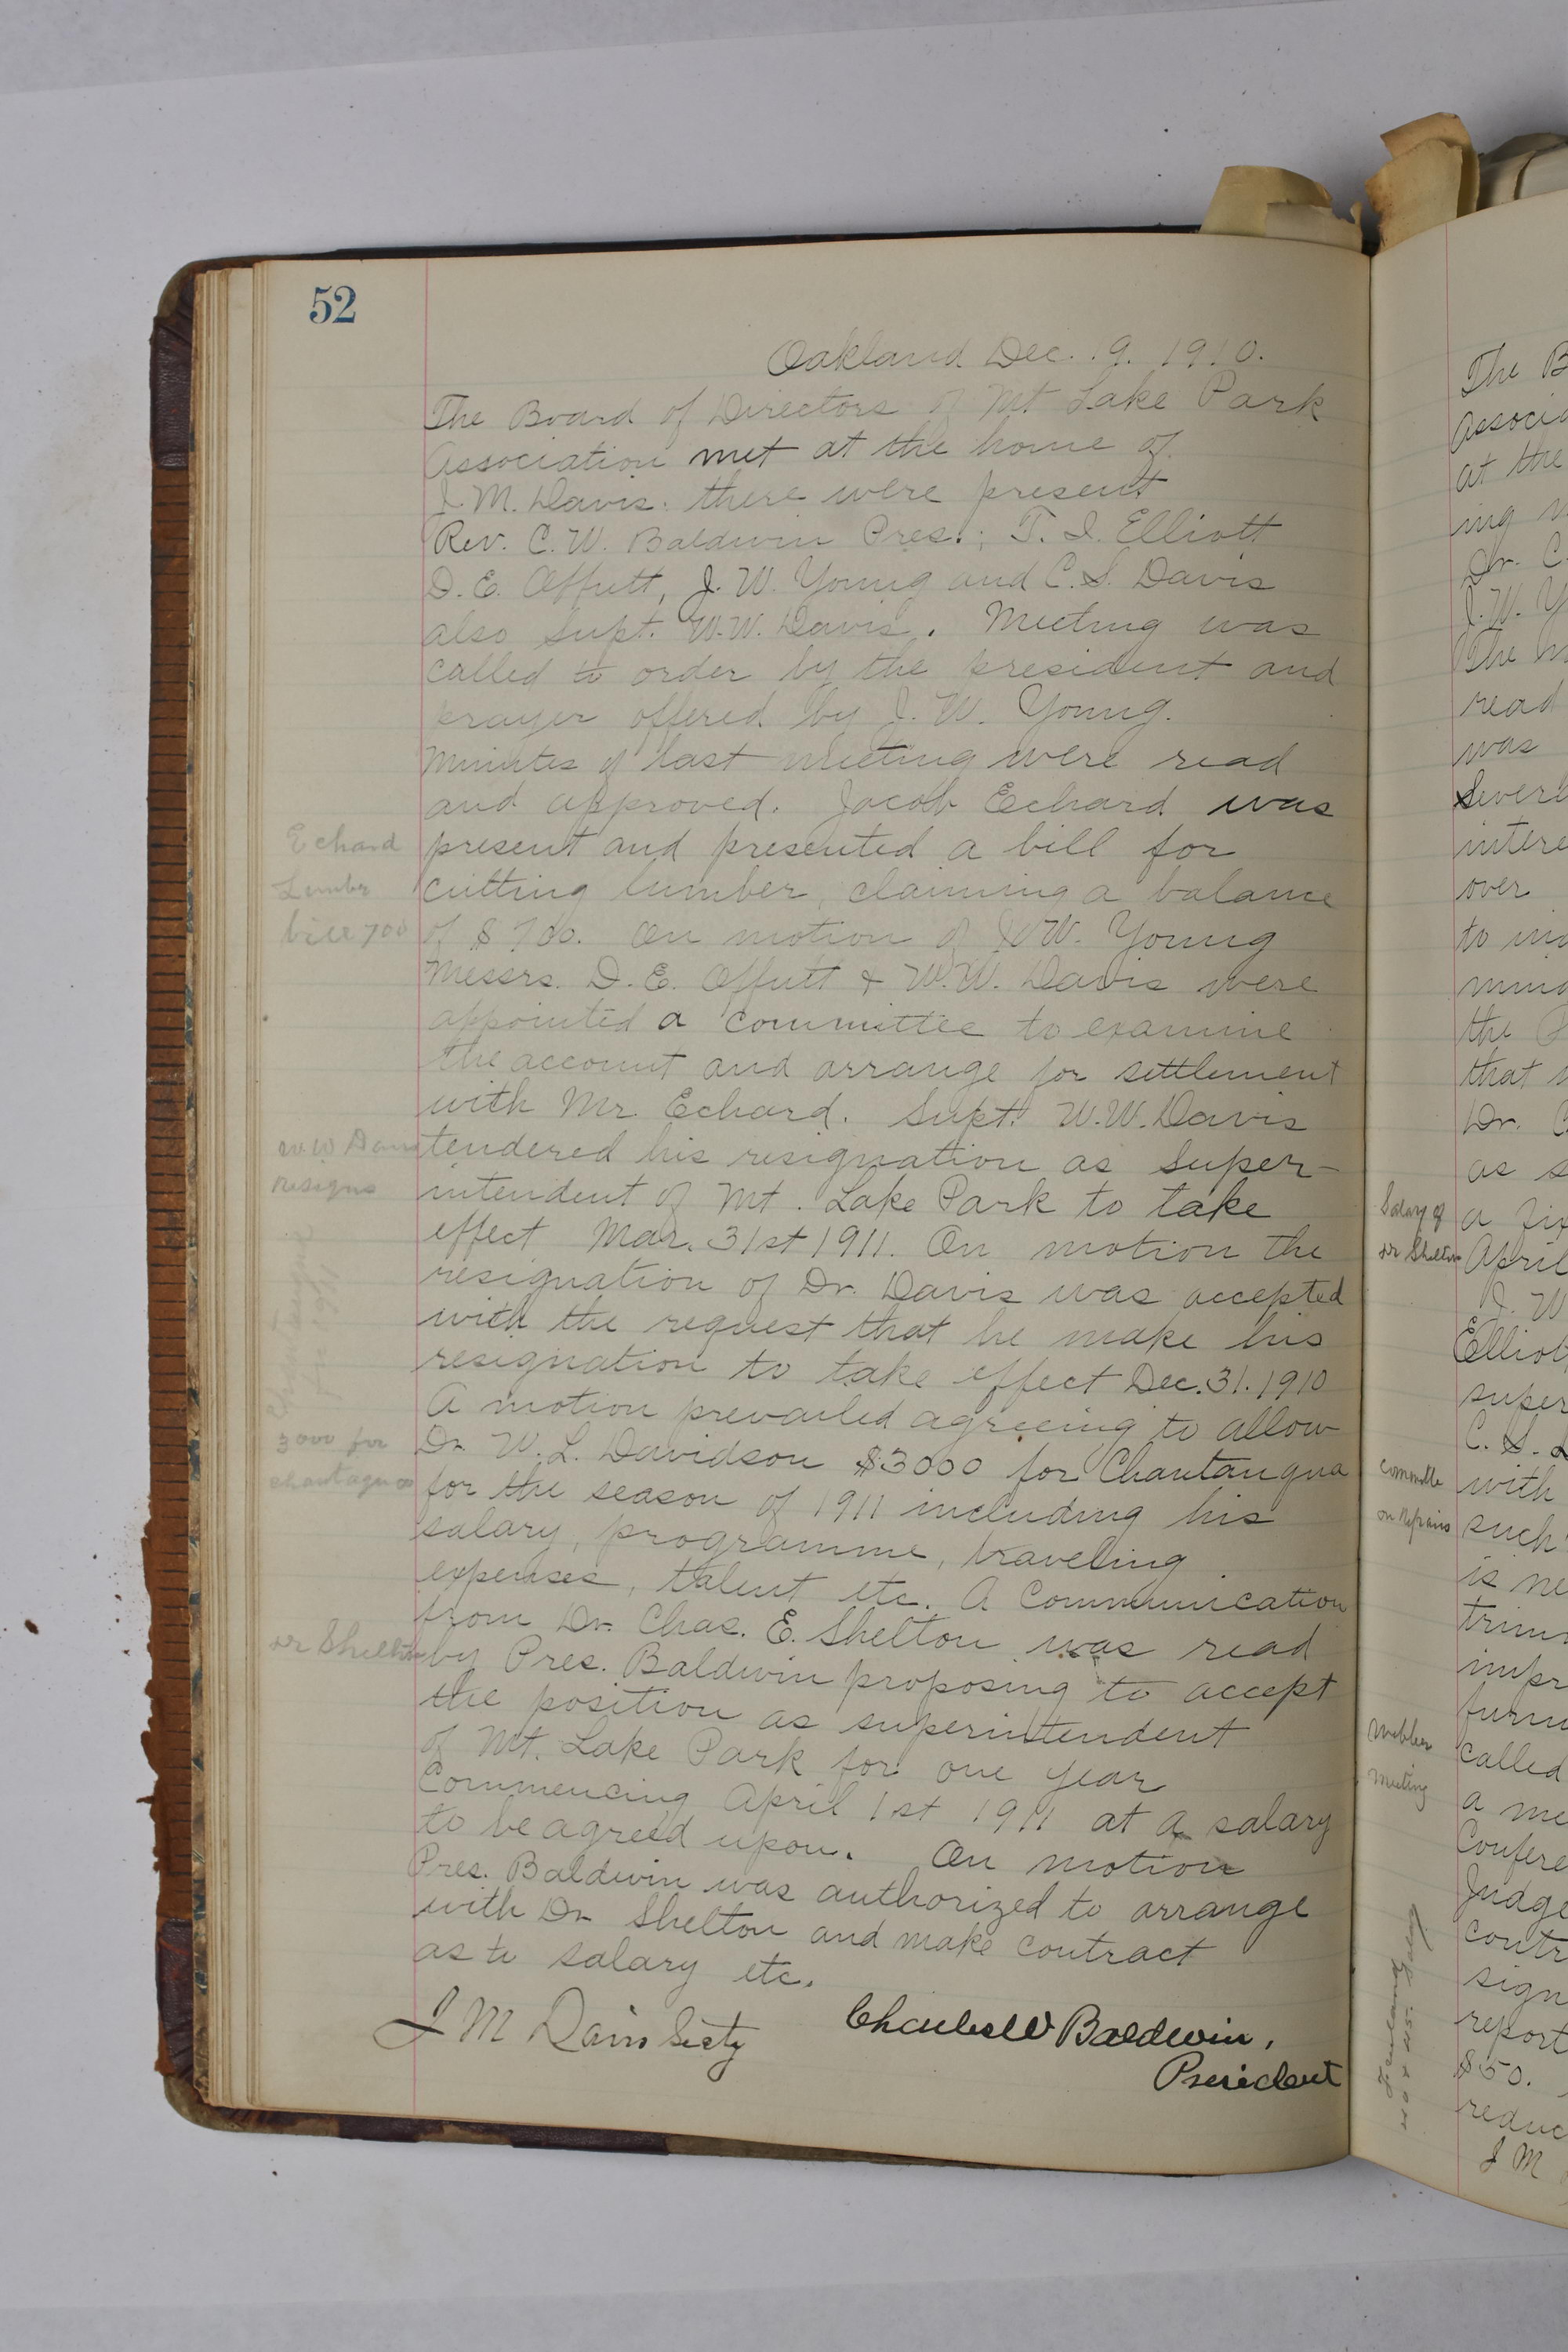 52
Oakland Dec. 19. 1910.
The Board of Directors of Mt Lake Park
Association met at the home of
J. M. Davis. there were present
Rev. C. W. Baldwin Pres.; T. I. Elliott
D. E. Offutt, J. W. Young and C. S. Davis
also Supt. W. W. Davis. Meeting was
called to order by the president and
prayer offered by J. W. Young.
Minutes of last meeting were read
and approved. Jacob Echard was
present and presented a bill for
cutting lumber, claiming a balance
of $ 700. On motion of J. W. Young
Messrs. D. E. Offutt & W. W. Davis were
appointed a committee to examine
the account and arrange for settlement
with Mr Echard. Supt. W. W. Davis
tendered his resignation as super-
intendent of Mt. Lake Park to take
effect Mar. 31st 1911. On motion the
resignation of Dr. Davis was accepted
with the request that he make his
resignation to take effect Dec. 31. 1910
A motion prevailed agreeing to allow
Dr. W. L. Davidson $3000 for Chautauqua
for the season of 1911 including his
salary, programme, traveling
expenses, talent etc. A Communication
from Dr. Chas. E. Shelton was read
by Pres. Baldwin proposing to accept
the position as superintendent
of Mt. Lake Park for one year
Commencing April 1st 1911 at a salary
to be agreed upon. On motion
Pres. Baldwin was authorized to arrange
with Dr Shelton and make contract
as to salary etc.
J M Davis Secty
Charles W Baldwin,
President
Echard
Lumber
bill 700
W W Davis
resigns
3000 for
chautauqua
Dr Shelton
Salary of
Dr Shelton
Committe
on repairs
Webber
meeting
The B
Associa
at the
ing
Dr. C.
J. W. Y
The
read
was
Severl
intere
over
to
the
that
Dr.
as s
a fix
April
J. W
Elliot
super
C. S.
with
such
is ne
trim
impr
furn
called
a me
Confere
Judge
contr
sign
report
$50.
reduc
J M